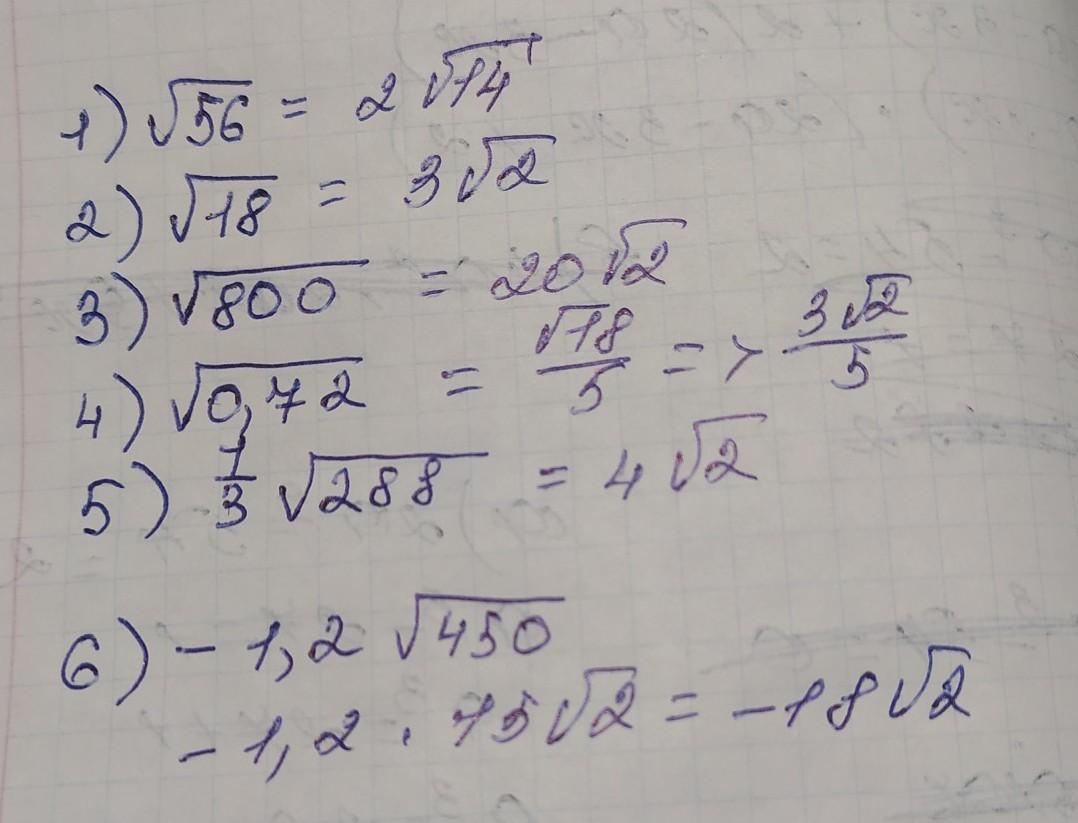 1) √56 = 2√14
2) √18 = 3√2
3) √800 = 20√2
4) √0,72 = √18/5 => 3√2/5
5) 1/3 √288 = 4√2
6) -1,2 √450
-1,2 · 15√2 = -18√2